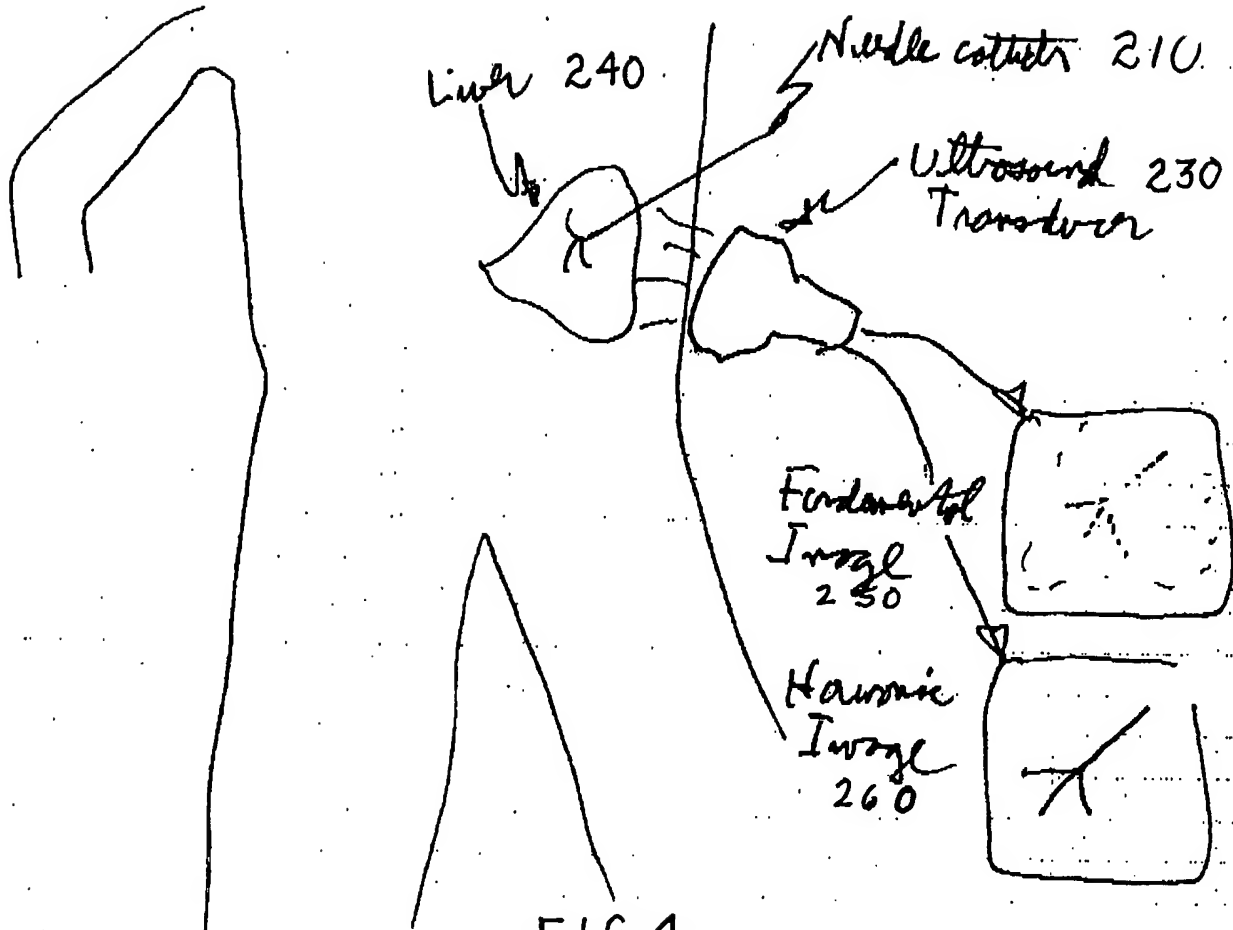 Needle catheter 210
Liver 240
Ultrasound 230
Transducer
Fundamental
Image
250
Harmonic
Image
260